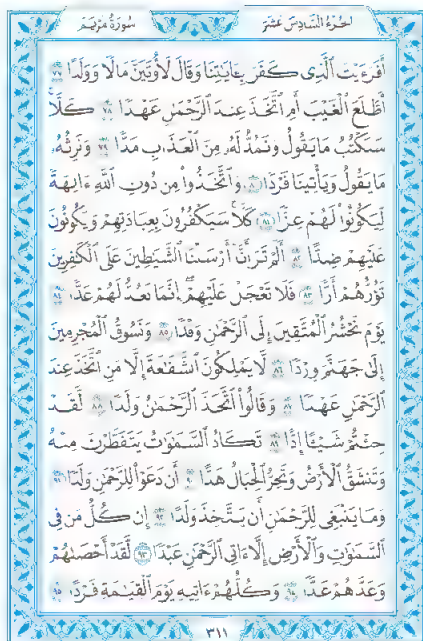 الجزء السادس عشر
سورة مريم
أفرءيت الذي كفر بـٔايٰتنا وقال لأوتين مالا وولدا ٧٧
أطلع الغيب أم اتخذ عند الرحمٰن عهدا ٧٨ كلا
سنكتب ما يقول ونمد له من العذاب مدا ٧٩ ونرثه
ما يقول ويأتينا فردا ٨٠ واتخذوا من دون الله ءالهة
ليكونوا لهم عزا ٨١ كلا سيكفرون بعبادتهم ويكونون
عليهم ضدا ٨٢ ألم تر أنا أرسلنا الشيٰطين على الكٰفرين
تؤزهم أزا ٨٣ فلا تعجل عليهم إنما نعد لهم عدا ٨٤
يوم نحشر المتقين إلى الرحمٰن وفدا ٨٥ ونسوق المجرمين
إلى جهنم وردا ٨٦ لا يملكون الشفٰعة إلا من اتخذ عند
الرحمٰن عهدا ٨٧ وقالوا اتخذ الرحمٰن ولدا ٨٨ لقد
جئتم شيـٔا إدا ٨٩ تكاد السمٰوٰت يتفطرن منه
وتنشق الأرض وتخر الجبال هدا ٩٠ أن دعوا للرحمٰن ولدا ٩١
وما ينبغي للرحمٰن أن يتخذ ولدا ٩٢ إن كل من في
السمٰوٰت والأرض إلا ءاتي الرحمٰن عبدا ٩٣ لقد أحصىٰهم
وعدهم عدا ٩٤ وكلهم ءاتيه يوم القيٰمة فردا ٩٥
٣١١